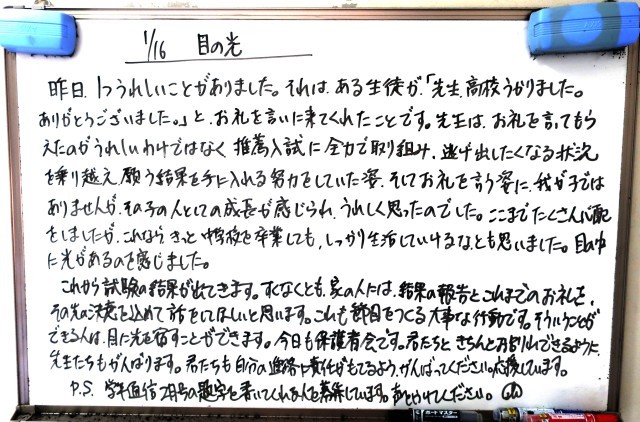 1/16 目の光
昨日、1つうれしいことがありました。それは、ある生徒が、「先生、高校うかりました。
ありがとうございました。」と、お礼を言いに来てくれたことです。先生は、お礼を言ってもら
えたのがうれしいわけではなく、推薦入試に全力で取り組み、逃げ出したくなる状況
を乗り越え、願う結果を手に入れる努力をしていた姿、そしてお礼を言う姿に、我が子では
ありませんが、その子の人としての成長が感じられ、うれしく思ったのでした。ここまでたくさん心配
をしましたが、これなら、きっと中学校を卒業しても、しっかり生活していけるなとも思いました。目の中
に光があるのを感じました。
これから試験の結果が出てきます。すくなくとも、家の人には、結果の報告とこれまでのお礼を、
その先の決意を込めて話をしてほしいと思います。これも節目をつくる大事な行動です。そういうことが
できる人は、目に光を宿すことができます。今日も保護者会です。君たちときちんとお別れできるように
先生たちもがんばります。君たちも自分の進路に責任がもてるよう、がんばってください。応援しています。
P.S. 学年通信2月号の題字を書いてくれる人を募集しています。声をかけてください。
ボードマスター